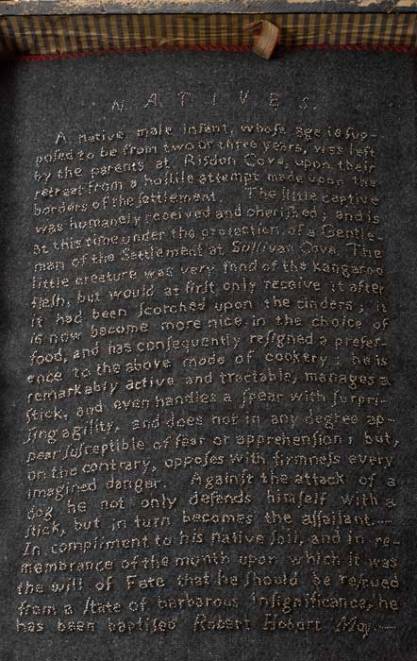 NATIVES.
A native male infant, whoſe age is ſup-
poſed to be from two or three years, was left
by the parents at Risdon Cove, upon their
retreat from a hoſtile attempt made upon the
borders of the ſettlement. The little captive
was humanely received and cheriſhed ; and is
at this time under the protection of a Gentle-
man of the Settlement at Sullivan Cove. The
little creature was very fond of the kangaroo
fleſh, but would at firſt only receive it after
it had been ſcorched upon the cinders ; it
is now become more nice in the choice of
food, and has conſequently reſigned a prefer-
ence to the above mode of cookery ; he is
remarkably active and tractable, manages a
ſtick, and even handles a ſpear with ſurpri-
ſing agility, and does not in any degree ap-
pear ſuſceptible of fear or apprehenſion ; but,
on the contrary, oppoſes with firmneſs every
imagined danger. Againſt the attack of a
dog he not only defends himſelf with a
ſtick, but in turn becomes the aſſailant.—
In compliment to his native ſoil, and in re-
membrance of the month upon which it was
the will of Fate that he ſhould be reſcued
from a ſtate of barbarous inſignificance, he
has been baptiſed Robert Hobart May.—